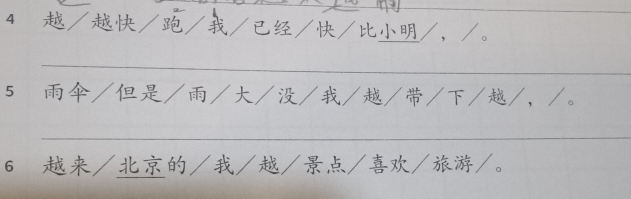 4 越／越快／跑／我／已经／快／比小明／，／。
5 雨伞／但是／雨／大／没／我／越／带／下／越／，／。
6 越来／北京的／我／越／景点／喜欢／旅游／。